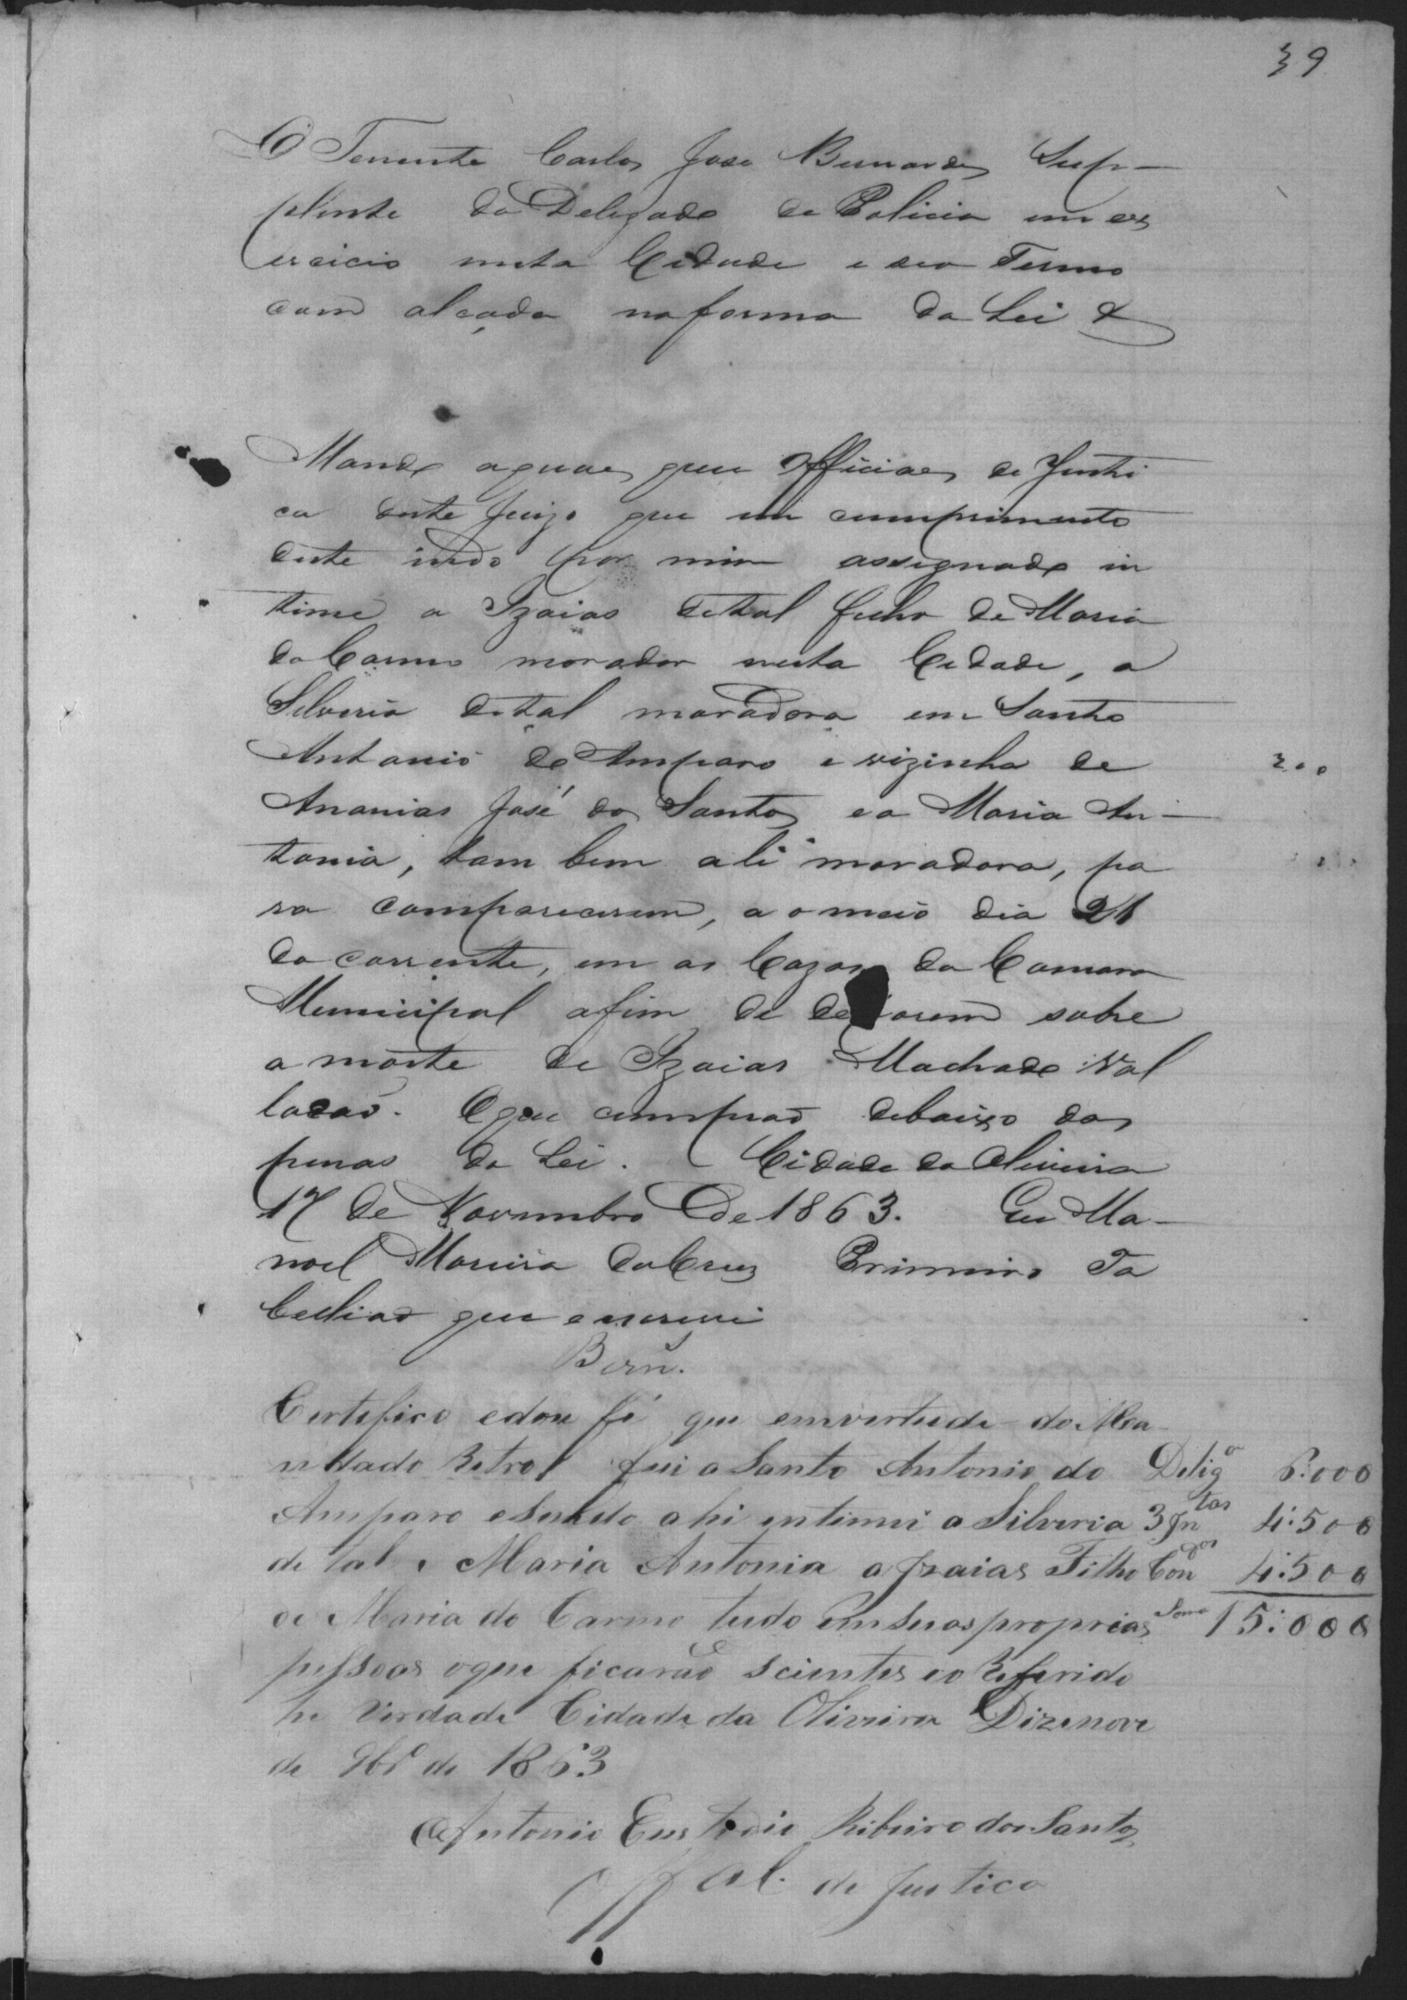 39
O Tenente Carlos Jose Bernardes Sup-
plente do Delegado de Policia em ex
ercicio nesta Cidade e seo Termo
com alçada na forma da Lei &
Mando aquaes quer Officiaes de Justi
ca deste Juizo que em cumprimento
deste indo por mim assignado in
time a Izaias detal filho de Maria
do Carmo morador nesta Cidade, a
Silveria detal moradora em Santo
Antonio do Amparo e vizinha de
Ananias José dos Santos e a Maria An-
tonia, tam bem ali moradora, pa
ra comparecerem, ao meio dia 21
do corrente, em as Cazas da Camara
Municipal afim de de orem sobre
a morte de Izaias Machado Val
ladaõ. Oque cumpraõ debaixo das
penas da Lei. Cidade da Oliveira
17 de Novembro de 1863. Eu Ma-
noel Moreira da Cruz Primeiro Ta
belliaõ que escrevi
Bern.es
200
Certifico edou fé que emvertude do Man
ndado Retro fui a Santo Antonio do Delig.a 6:000
Amparo esendo ahi intimei a Silveria 3 In.tas 4:500
de tal e Maria Antonia a Izaias Filho Con.dos 4:500
de Maria do Carmo tudo em suas proprias Soma 15:000
pessoas oque ficaraõ scientes eo Referido
he Verdade Cidade da Oliveira Dizenove
de 9br.o de 1863
Antonio Eustodio Ribeiro dos Santos
Off.al de Justica